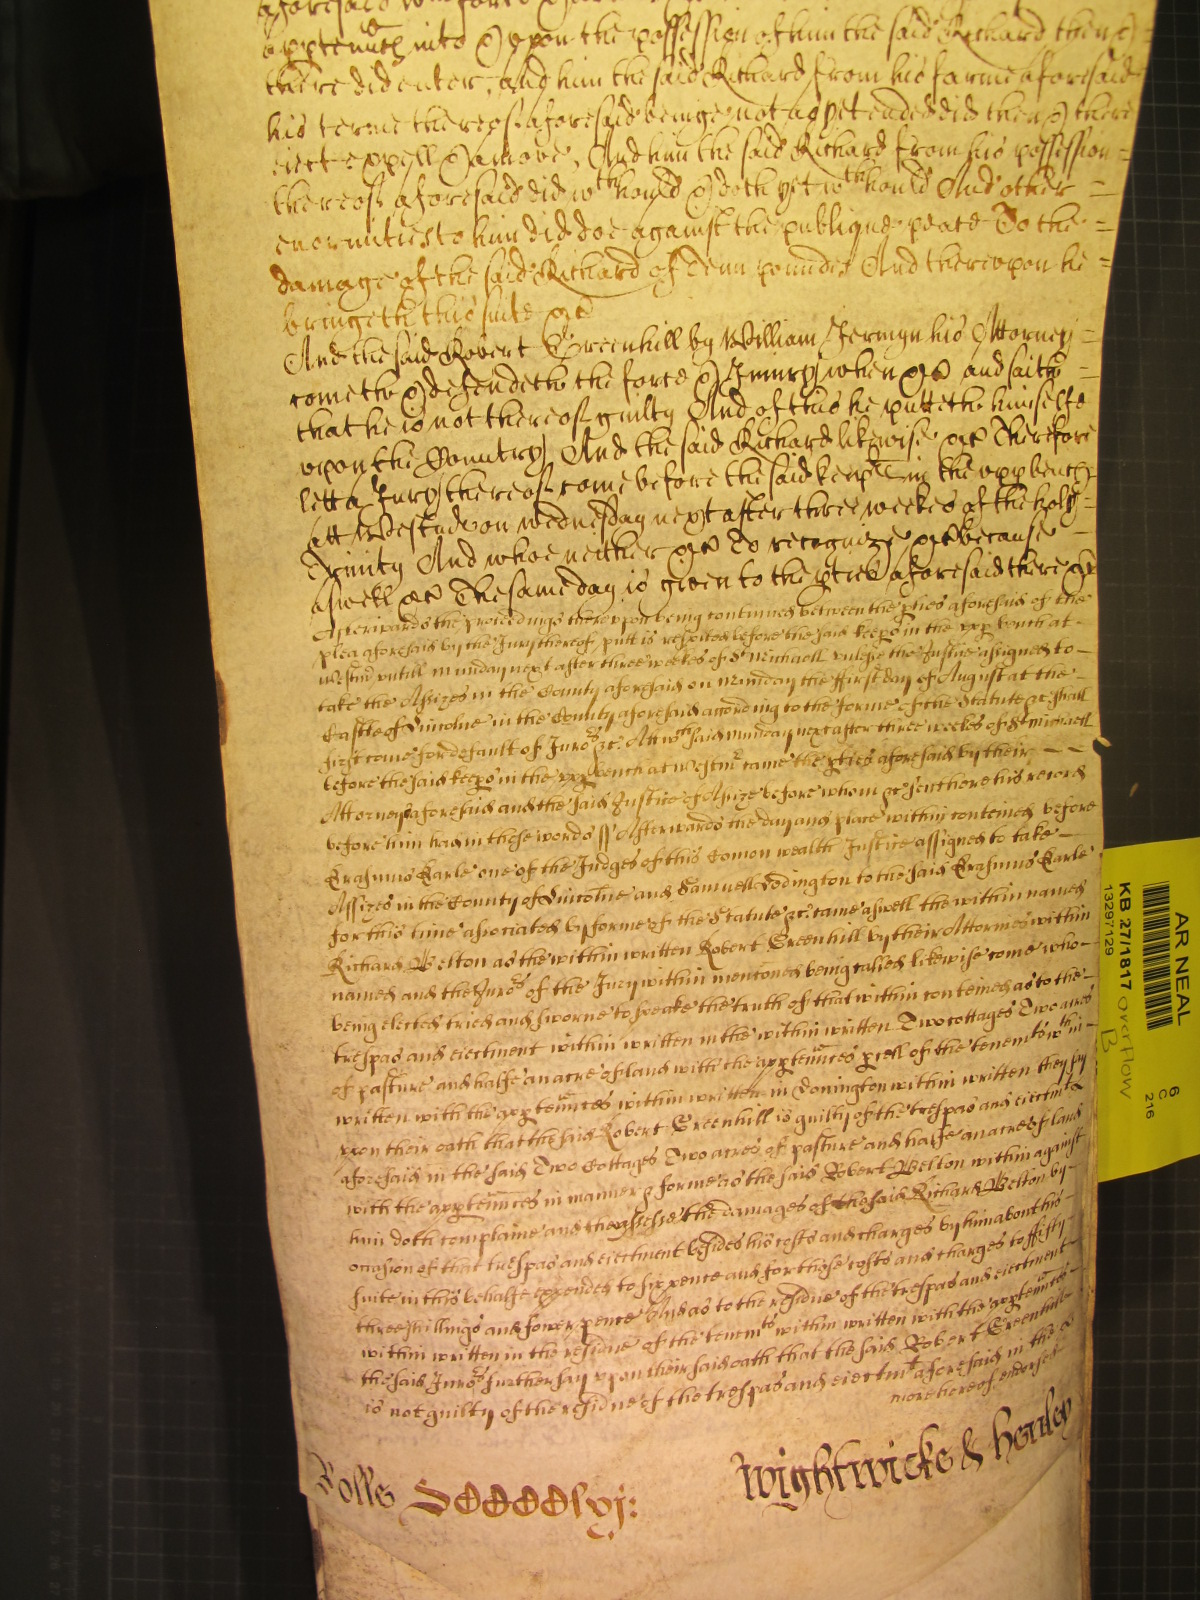 apptennces into & upon the possession of him the said Richard then &
there did enter, and him the said Richard from his farme aforesaid
his terme thereof aforesaid beinge not as yet ended did then & there
eiect expell & amove, And him the said Richard from his possession
thereof aforesaid did wthhould & doth yet wthhould And other
enormities to him did doe against the publique peace To the
damage of the said Richard of Tenn poundes And thereupon he
bringeth this suite &c
And the said Robert Greenhill by William Jermyn his Attorney
cometh & defendeth the force & Iniury when &c and saith
that he is not thereof guilty And of this he putteth himselfe
upon the Country And the said Richard likewise &c Therefore
lett a Jury thereof come before the said keeps in the upp bench
att Westm upon wednesday next after three weekes of the holy
Trinity And whoe neither &c To recognize &c because
aswell &c The same day is given to the pties aforesaid there &c
Afterwards the proceedings thereupon being continued betweene the pties aforesaid of the
plea aforesaid by the Jury thereof putt is respited before the said keeps in the upp bench at
Westmr untill munday next after three weekes of St Michaell unlesse the Justice assigned to
take the Assizes in the County aforesaid on Munday the ffirst day of August at the
Castle of Lincolne in the County aforesaid according to the forme of the Statute &c shall
first come for default of Jurors &c. Att wch said munday next after three weekes of St Michaell
before the said keeps in the upp bench at Westmr came the pties aforesaid by their
Attorneys aforesaid and the said Justice of Assize before whom &c sent here his record
before him had in these words ss Afterwards the day and place within conteined before
Erasmus Earle one of the Judges of this Comon wealth Justice assigned to take
Assizes in the County of Lincolne and Samuell Lodington to the said Erasmus Earle
for this time associated by forme of the Statute &c. came aswell the within named
Richard Belton as the within written Robert Greenhill by their Attornies within
named and the Jurors of the Jury within mentoned being called likewise come who
being elected tried and sworne to speake the truth of that within conteined as to the
trespas and eiectment within written in the within written Two cottages Two acres
of pasture and halfe an acre of land with the apptennces pcell of the tenemts within
written with the apptennces within written in Donington within written they say
upon their oath that the said Robert Greenhill is guilty of the trespas and eiectmt
aforesaid in the said Two Cottages Two acres of pasture and halfe an acre of land
with the apptennces in manner & forme as the said Robert Belton within against
him doth complaine and they assesse the damages of the said Richard Belton by
occasion of that trespas and eiectment besides his costs and charges by him about his
suite in this behalfe expended to six pence and for those costs and charges to fifty
three shillings and fower pence And as to the residue of the trespas and eiectment
within written in the residue of the tenemts within written with the apptennces
the said Jurors further say upon their said oath that the said Robert Greenhill
is not guilty of the residue of the trespas and eiectmt aforesaid in the
more hereof endorsed
Rolls DCCCClvj:
Wightwicke & Henley
AR NEAL
KB 27/1817 overflow
B
13297129
6
C
216